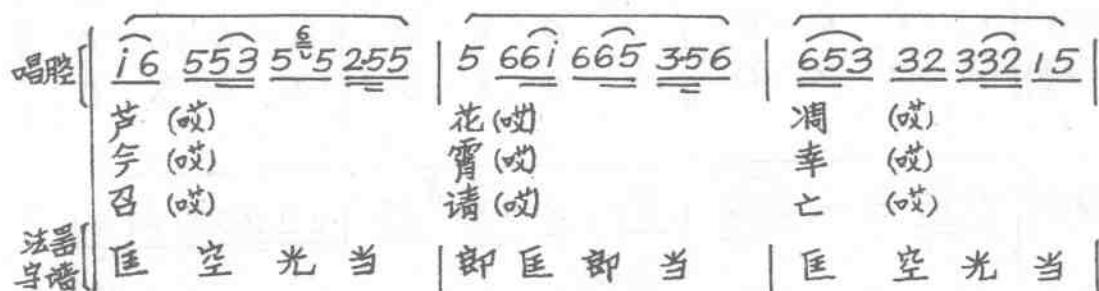 唱腔 i6 553 5 6 5 2·55 | 5 66i 665 3·56 | 653 32 332 15 |
芦 (哎) 花 (哎) 凋 (哎)
今 (哎) 霄 (哎) 幸 (哎)
召 (哎) 请 (哎) 亡 (哎)
法器字谱 匡 空 光 当 | 郎 匡 郎 当 | 匡 空 光 当 |